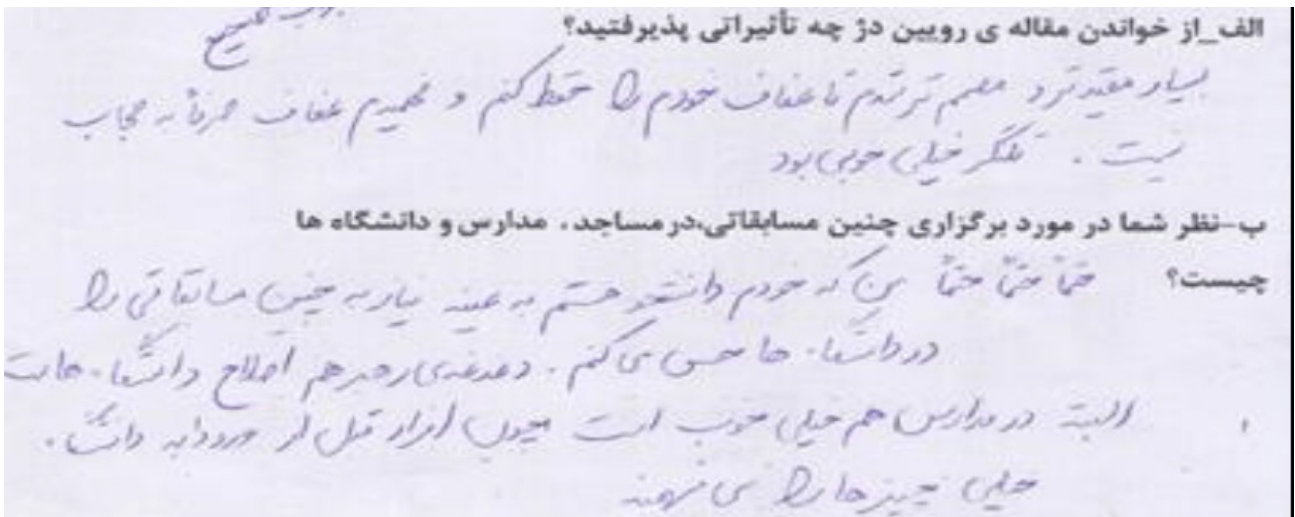 صحیح
الف_از خواندن مقاله ی رویین دژ چه تأثیراتی پذیرفتید؟
بسیار مقیدتر و مصمم تر شدم تا عفاف خودم را حفظ کنم و فهمیدم عفاف صرفاً به حجاب
نیست . تلنگر خیلی خوبی بود
ب-نظر شما در مورد برگزاری چنین مسابقاتی،در مساجد . مدارس و دانشگاه ها
چیست؟ حتماً حتماً حتماً من که خودم دانشجو هستم به عینه نیاز به چنین مسابقاتی را
در دانشگاه ها حس می کنم . دغدغه ی رهبر هم اصلاح دانشگاه هاست
البته در مدارس هم خیلی خوب است چون افراد قبل از ورود به دانشگاه .
خیلی چیزها را می فهمند